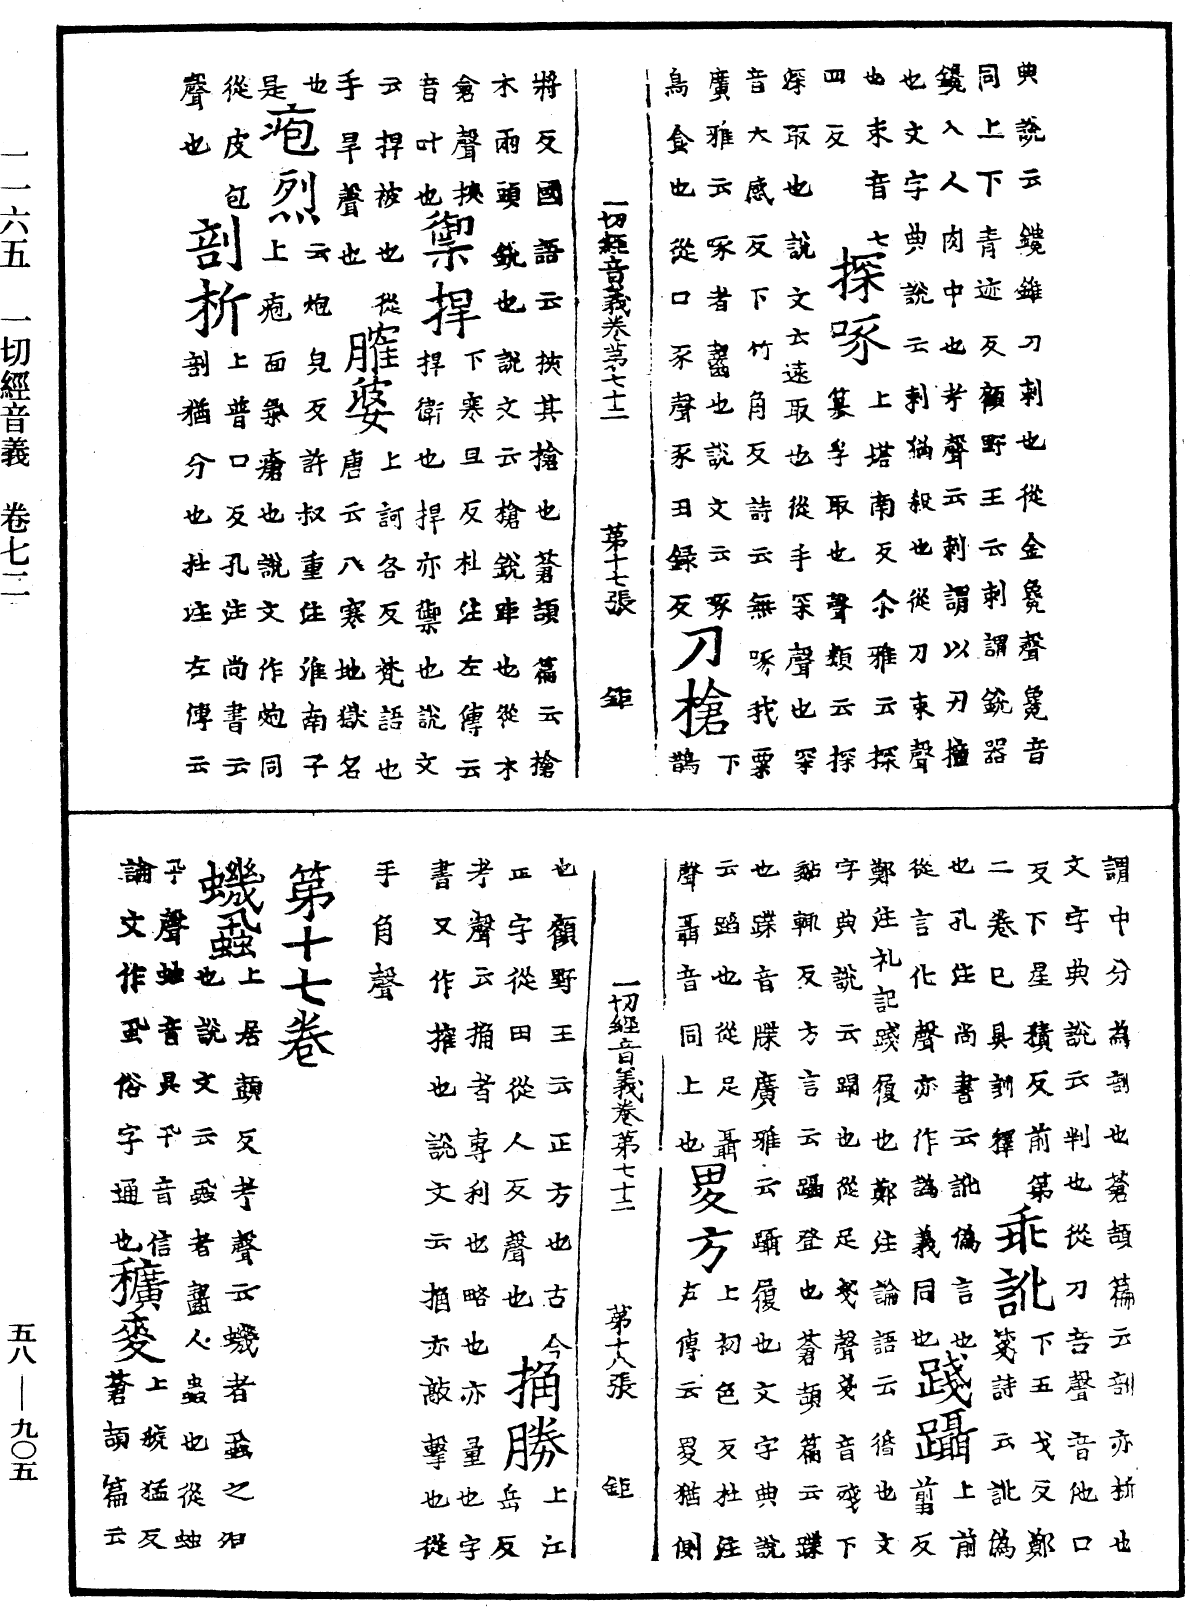 典說云鑱錐刀刺也從金毚聲毚音
同上下青迹反顧野王云刺謂銳器
鑱入人肉中也考聲云刺謂以刃撞
也文字典說云刺猶殺也從刀朿聲
也朿音七 探啄 上塔南反尒雅云探
四反 篡孚取也聲類云探
深取也說文云遠取也從手罙聲也罙
音大感反下竹角反詩云無啄我粟
廣雅云啄者齧也說文云啄 下
鳥食也從口豕聲豕丑録反 刀槍 鵲
一切經音義卷第七十二 第十七張 鉅
將反國語云挾其槍也蒼頡篇云槍
木兩頭銳也說文云槍銳也從木
倉聲挾 禦捍 下寒旦反杜注左傳云
音叶也 捍衛也捍亦禦也說文
云捍被也從 上訶各反梵語也
手旱聲也 臛婆 唐云八寒地獄名
也 皰烈 上炮皃反許叔重注淮南子
是 云皰面氣瘡也說文作皰同
從皮包 剖析 上普口反孔注尚書云
聲也 剖猶分也杜注左傳云
謂中分為剖也蒼頡篇云剖亦析也
文字典說云判也從刀咅聲咅音他口
反下星積反前第 乖訛 下五戈反鄭
二卷已具訓釋 箋詩云訛偽
也孔注尚書云訛偽言也 踐躡 上前
從言化聲亦作譌義同也 翦反
鄭注礼記踐履也鄭注論語云循也文
字典說云蹋也從足戔聲戔音殘下
黏輒反方言云躡登也蒼頡篇云躡
也蹀音牒廣雅云躡履也文字典說
云蹈也從足聶 畟方 上初色反杜注
聲聶音同上也 左傳云畟猶側
一切經音義卷第七十二 第十八張 鉅
也顧野王云正方也古今 捔勝 上江
正字從田從人夊聲也 岳反
考聲云捔者專利也略也亦量也字
書又作搉也說文云捔亦敲擊也從
手角聲
第十七卷
蟣蝨 上居顗反考聲云蟣者蝨之
也說文云蝨者齧人蟲也從䖵
卂聲䖵音具卂音信 穬麥 上虢猛反
論文作虱俗字通也 蒼頡篇云
一一六五 一切經音義 卷七二
五八—九〇五